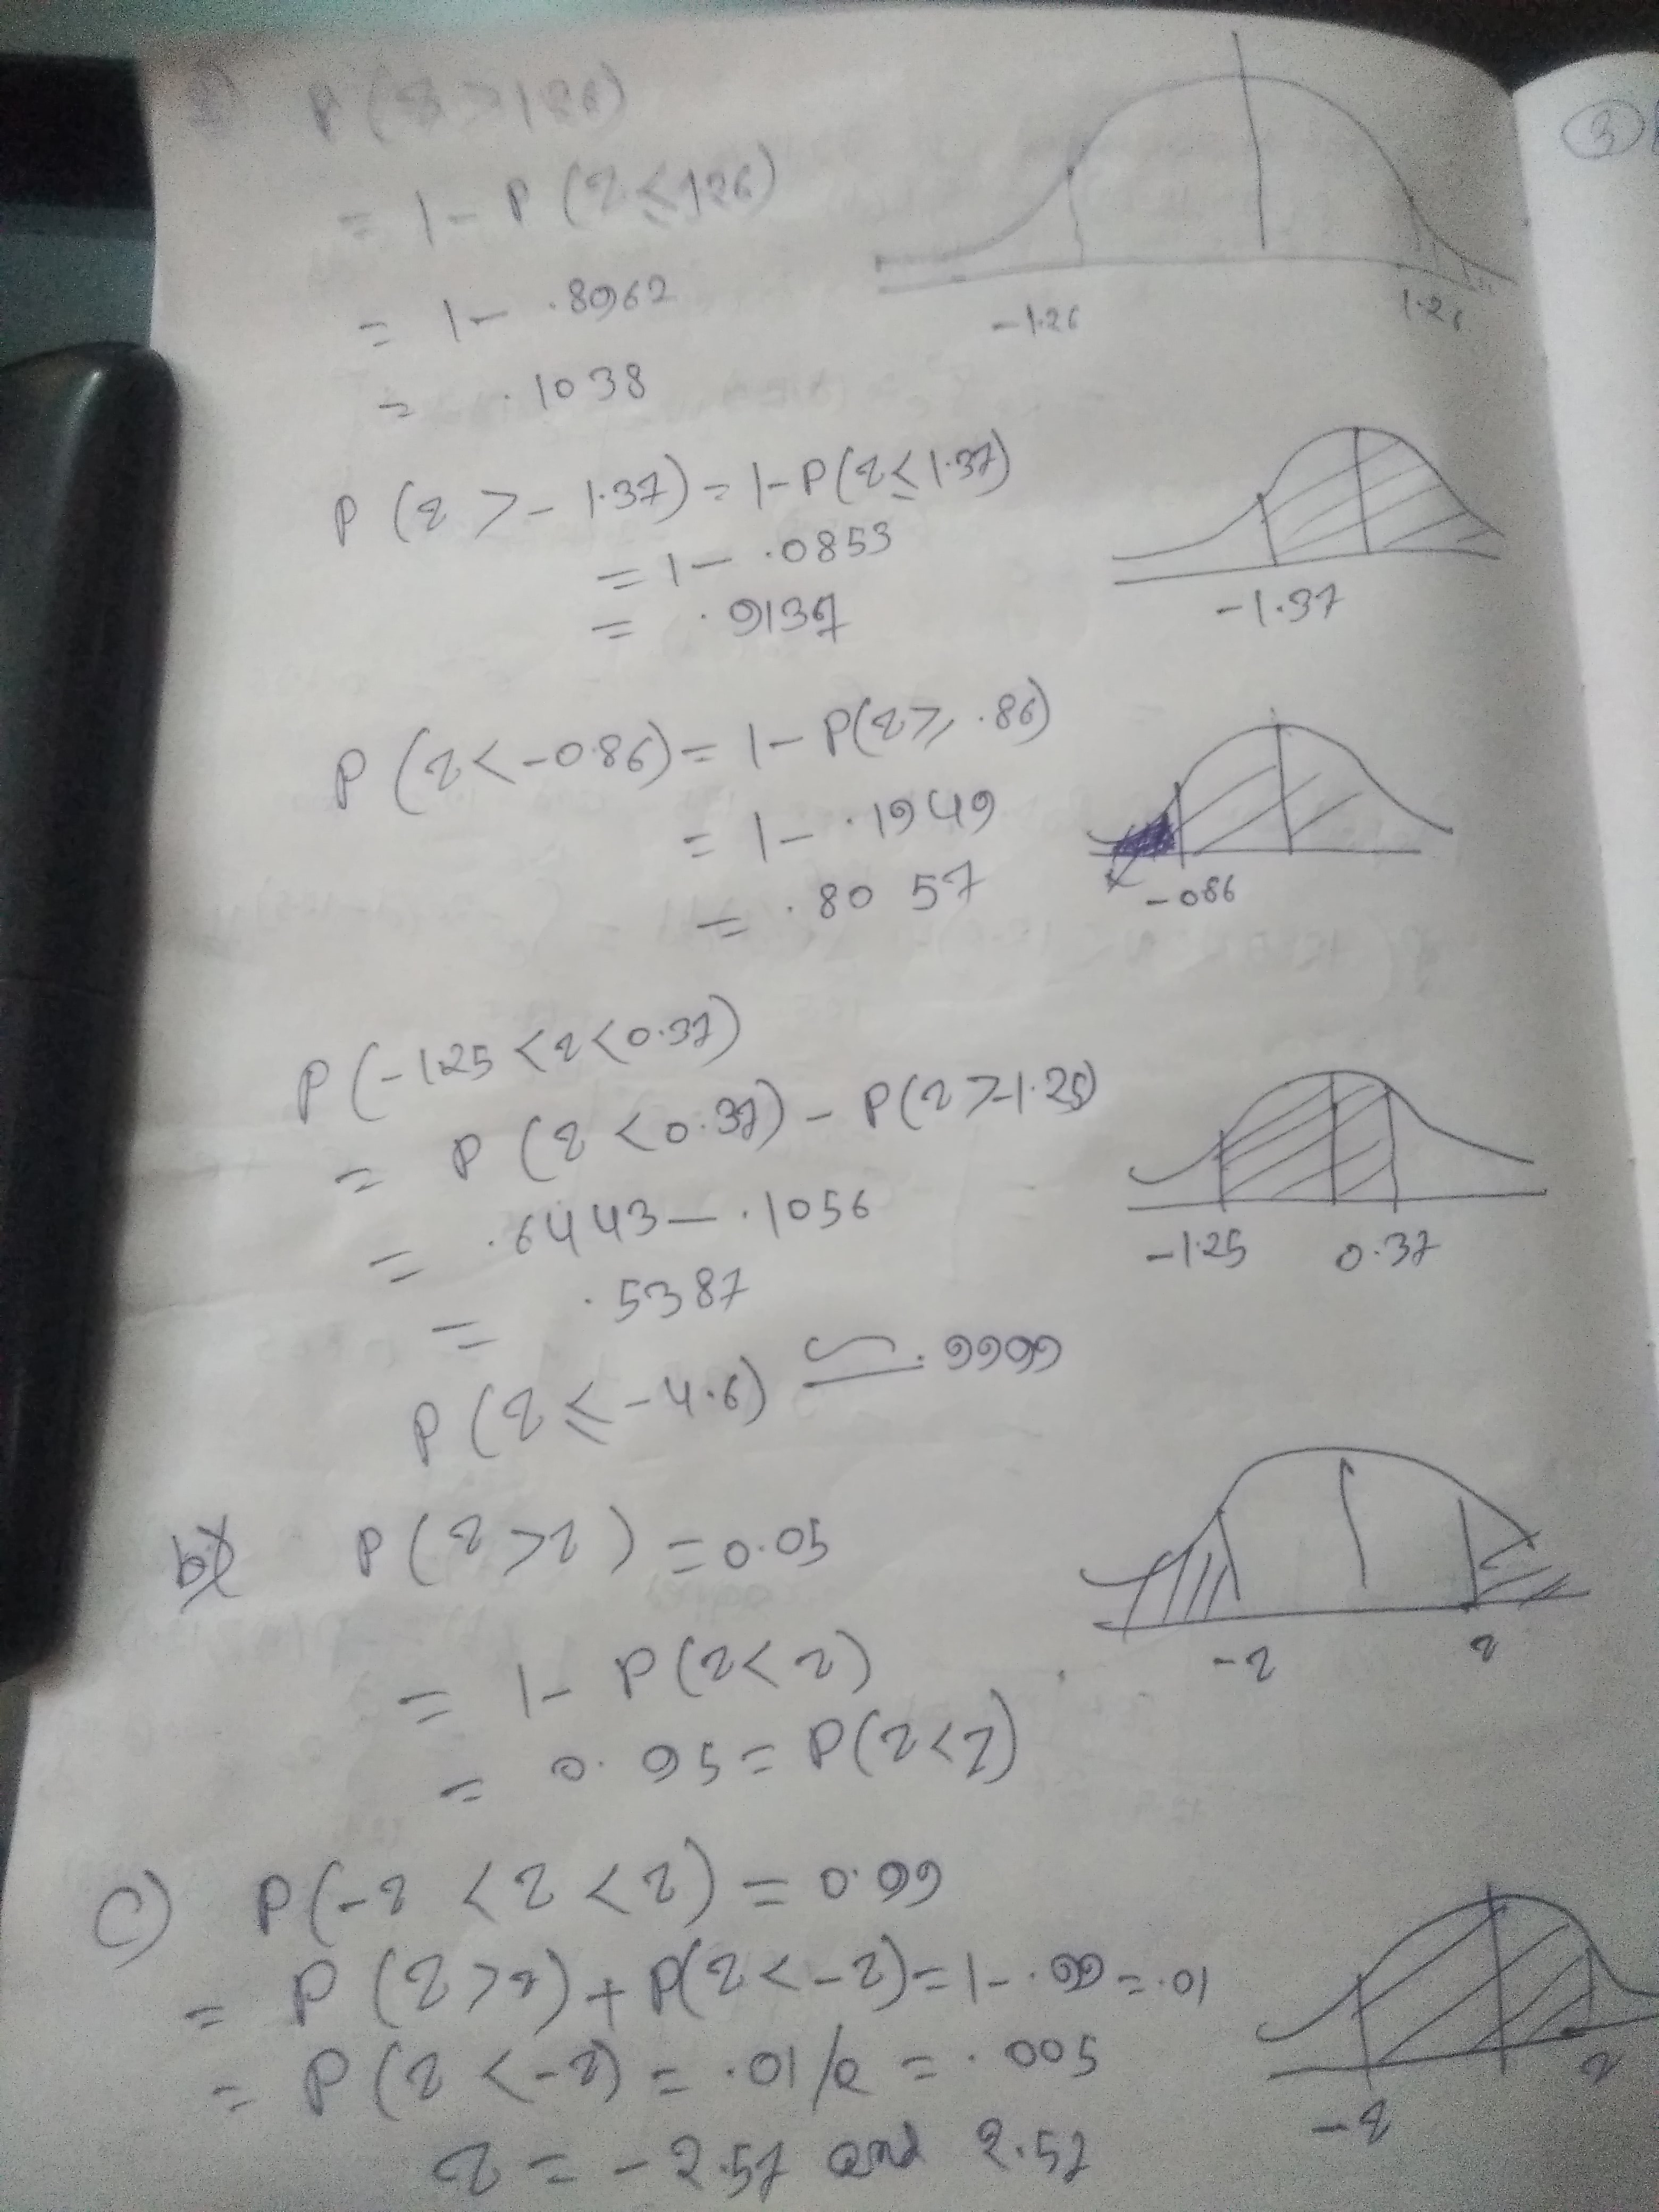 P(z > 1.26)
= 1 - P(z ≤ 1.26)
= 1 - .8962
= .1038
-1.26 1.26
P(z > -1.37) = 1 - P(z ≤ 1.37)
= 1 - .0853
= .9137
-1.37
P(z < -0.86) = 1 - P(z ≥ .86)
= 1 - .1949
= .8057
-0.86
P(-1.25 < z < 0.37)
= P(z < 0.37) - P(z > -1.25)
= .6443 - .1056
= .5387
-1.25 0.37
P(z ≤ -4.6) ≃ .9999
b) P(z > z) = 0.05
= 1 - P(z < z)
= 0.95 = P(z < z)
-z z
c) P(-z < z < z) = 0.99
= P(z > z) + P(z < -z) = 1 - .99 = .01
= P(z < -z) = .01/2 = .005
z = -2.57 and 2.57
-z z
3